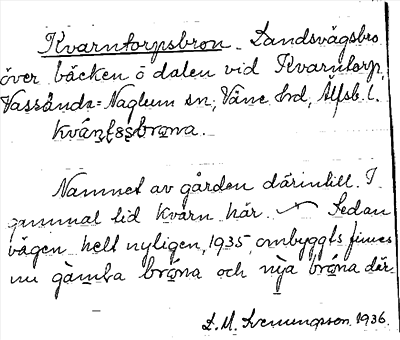 Kvarntorpsbron. Landsvägsbro
över bäcken o dalen vid Kvarntorp,
Vassända-Naglum sn, Väne hd, Älfsb. l.
Namnet av gården därintill. I
gammal tid kvarn här. Sedan
vägen helt nyligen, 1935, ombyggts finnes
nu gamla bróna och nya bróna där.
D. M. Svenungsson 1936.